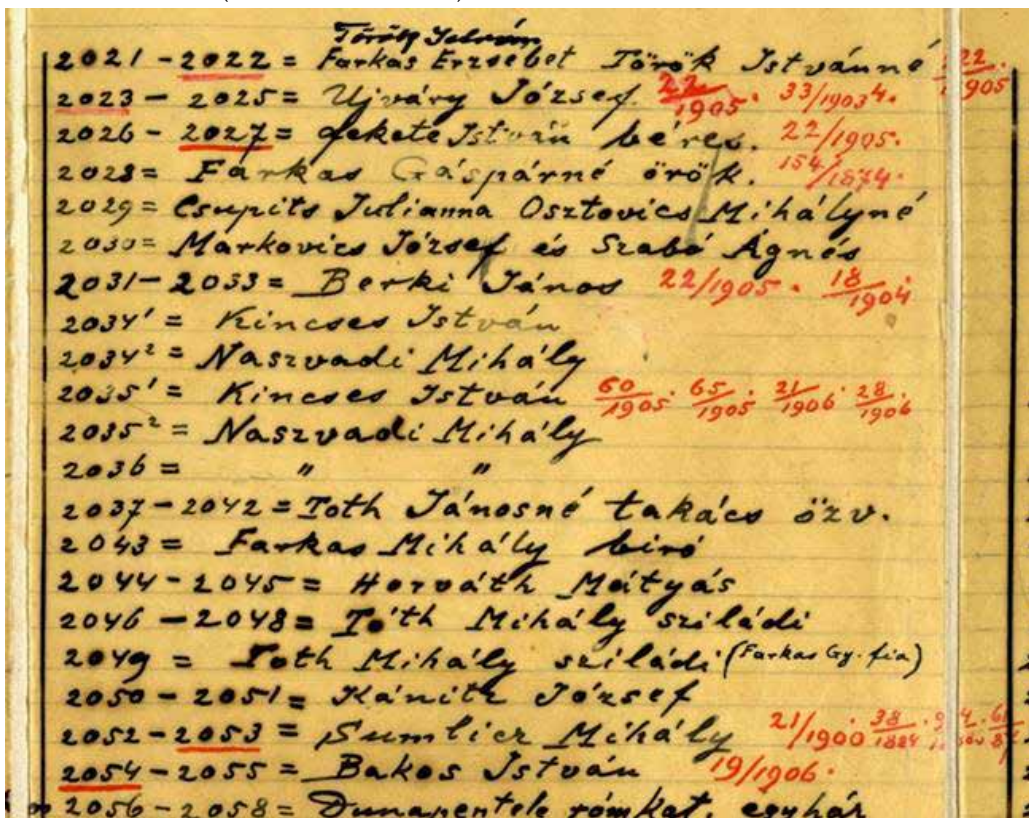 Török István
2021 - 2022 = Farkas Erzsébet Török Istvánné 22. / 1905
2023 - 2025 = Ujváry József. 22. / 1905. 33/1903⁴.
2026 - 2027 = fekete István béres. 22/1905.
2028 = Farkas Gáspárné örök. 154/1874.
2029 = Csupits Julianna Osztovics Mihályné
2030 = Markovics József és Szabó Ágnés
2031 - 2033 = Berki János 22/1905. 18/1904
2034¹ = Kincses István
2034² = Naszvadi Mihály
2035¹ = Kincses István 60/1905. 65/1905. 21/1906. 28/1906.
2035² = Naszvadi Mihály
2036 = " "
2037 - 2042 = Toth Jánosné takács özv.
2043 = Farkas Mihály biró
2044 - 2045 = Horváth Mátyás
2046 - 2048 = Tóth Mihály sziládi
2049 = Toth Mihály sziládi (Farkas Gy. fia)
2050 - 2051 = Kánitz József
2052 - 2053 = Sumlicz Mihály 21/1900. 38/1884
2054 - 2055 = Bakos István 19/1906.
2056 - 2058 = Dunapentele rómkat. egyház